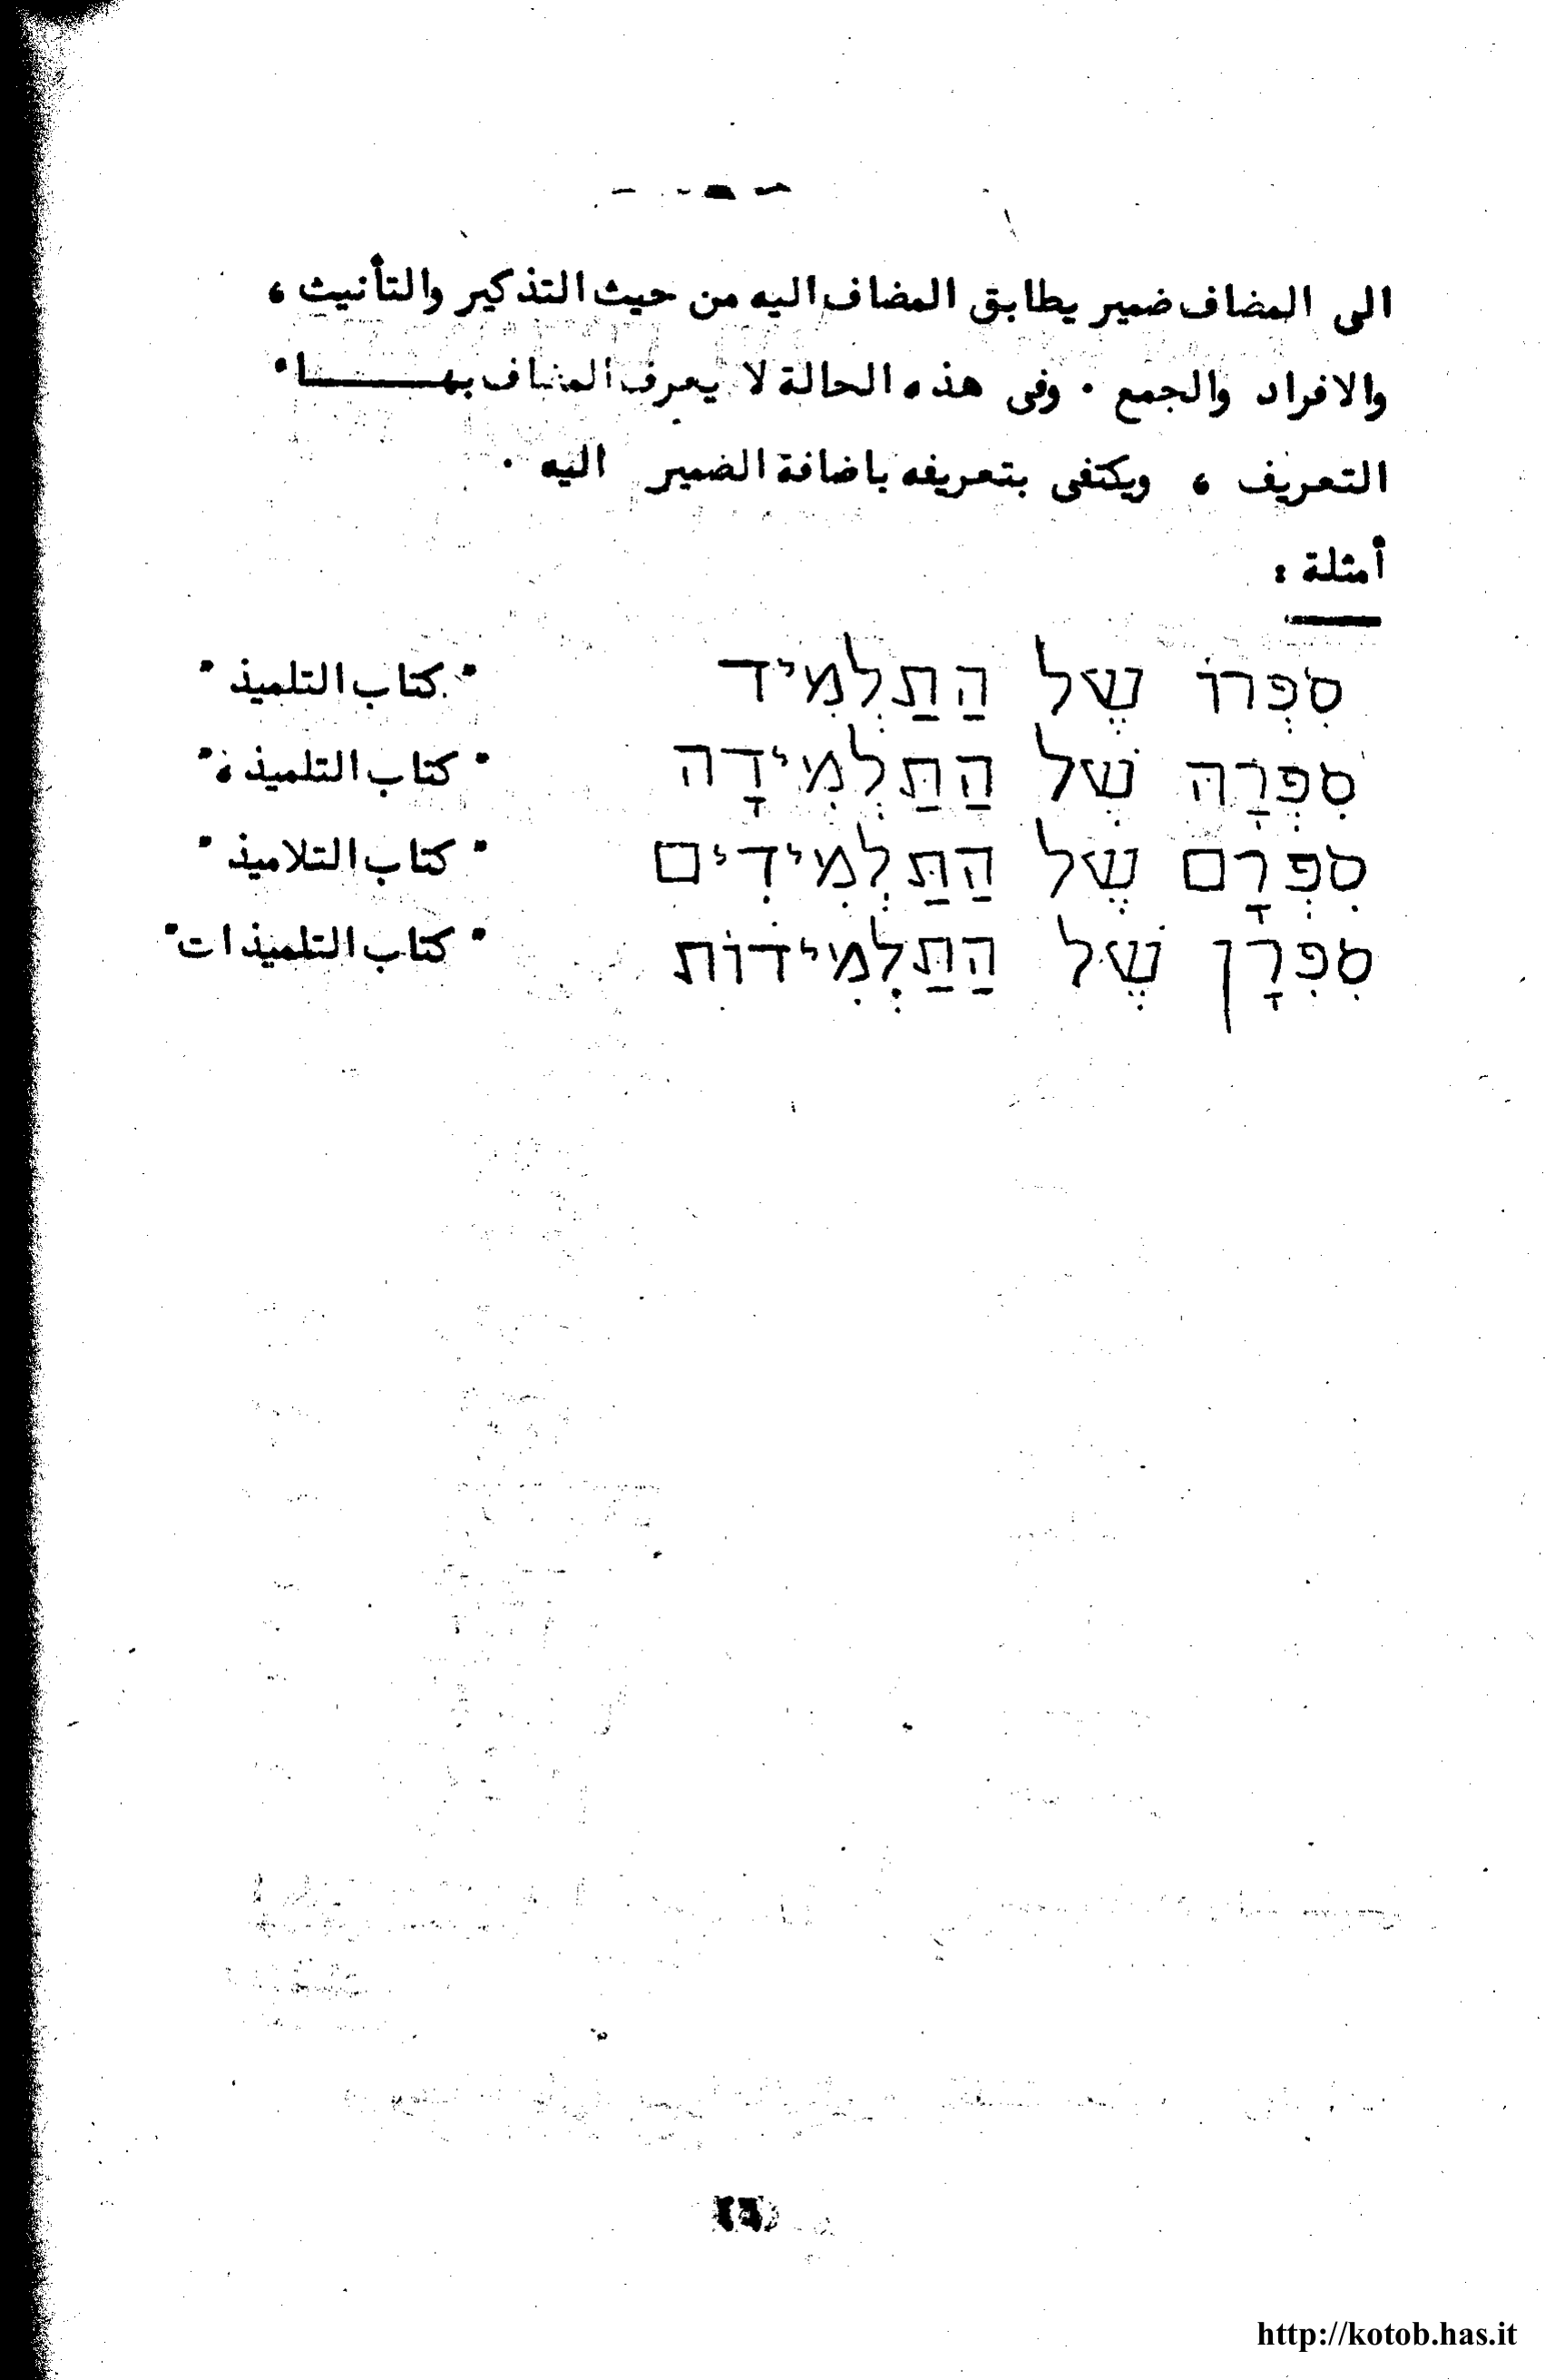 الى المضاف ضمير يطابق المضاف اليه من حيث التذكير والتأنيث ،
والافراد والجمع . وفى هذه الحالة لا يعرف المضاف بهـــــا٠
التعريف ، ويكتفى بتعريفه باضافة الضمير اليه .
أمثلة :
סִפְרוֹ שֶׁל הַתַּלְמִיד " كتاب التلميذ "
סִפְרָהּ שֶׁל הַתַּלְמִידָה " كتاب التلميذة "
סִפְרָם שֶׁל הַתַּלְמִידִים " كتاب التلاميذ "
סִפִרָן שֶׁל הַתַּלְמִידוֹת " كتاب التلميذات "
http://kotob.has.it